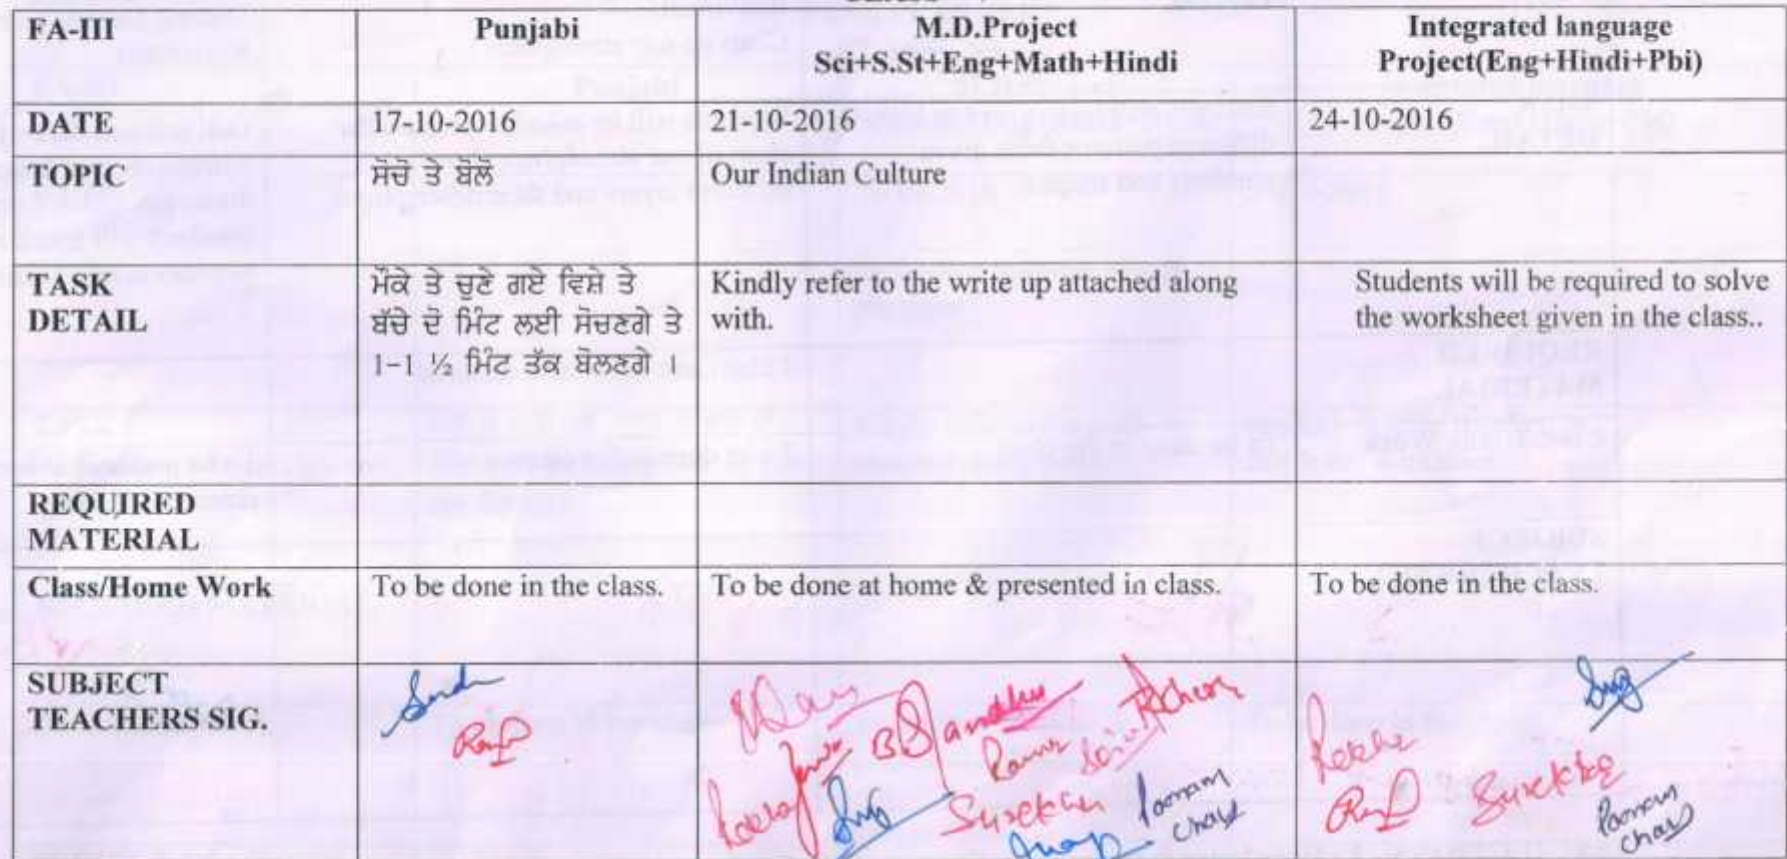 FA-III
Punjabi
M.D.Project
Sci+S.St+Eng+Math+Hindi
Integrated language
Project(Eng+Hindi+Pbi)
DATE
17-10-2016
21-10-2016
24-10-2016
TOPIC
ਸੋਚੋ ਤੇ ਬੋਲੋ
Our Indian Culture
TASK
DETAIL
ਮੌਕੇ ਤੇ ਚੁਣੇ ਗਏ ਵਿਸ਼ੇ ਤੇ
ਬੱਚੇ ਦੋ ਮਿੰਟ ਲਈ ਸੋਚਣਗੇ ਤੇ
1-1 ½ ਮਿੰਟ ਤੱਕ ਬੋਲਣਗੇ ।
Kindly refer to the write up attached along
with.
Students will be required to solve
the worksheet given in the class..
REQUIRED
MATERIAL
Class/Home Work
To be done in the class.
To be done at home & presented in class.
To be done in the class.
SUBJECT
TEACHERS SIG.
Poonam
Poonam